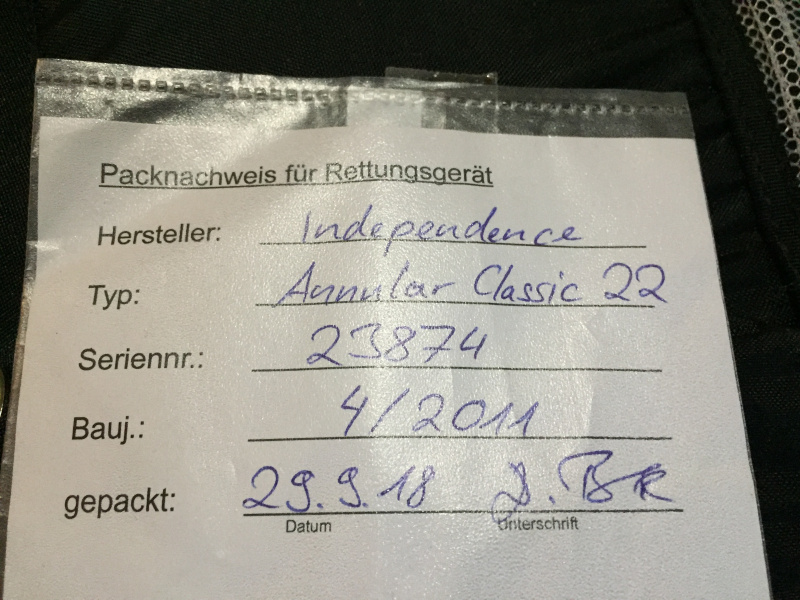 Packnachweis für Rettungsgerät
Hersteller: Independence
Typ: Annular Classic 22
Seriennr.: 23874
Bauj.: 4/2011
gepackt: 29.9.18
Datum Unterschrift